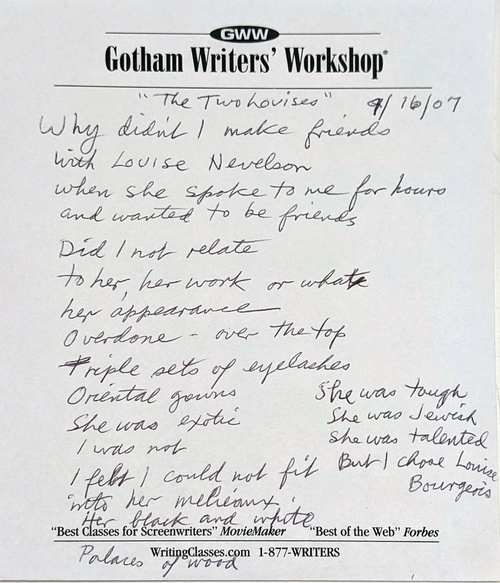 GWW
Gotham Writers' Workshop®
"The Two Louises" 9/16/07
Why didn't I make friends
with Louise Nevelson
when she spoke to me for hours
and wanted to be friends
Did I not relate
to her, her work or what
her appearance
Overdone - over the top
Triple sets of eyelashes
Oriental gowns
She was exotic
I was not
I felt I could not fit
into her melieaux.
Her black and white
Palaces of wood
She was tough
She was Jewish
She was talented
But I chose Louise
Bourgeois
"Best Classes for Screenwriters" MovieMaker "Best of the Web" Forbes
WritingClasses.com 1-877-WRITERS